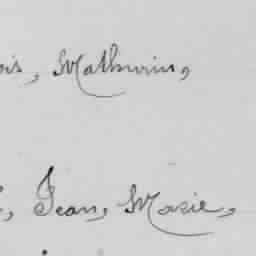 ois, Mathurin,
, Jean, Marie,